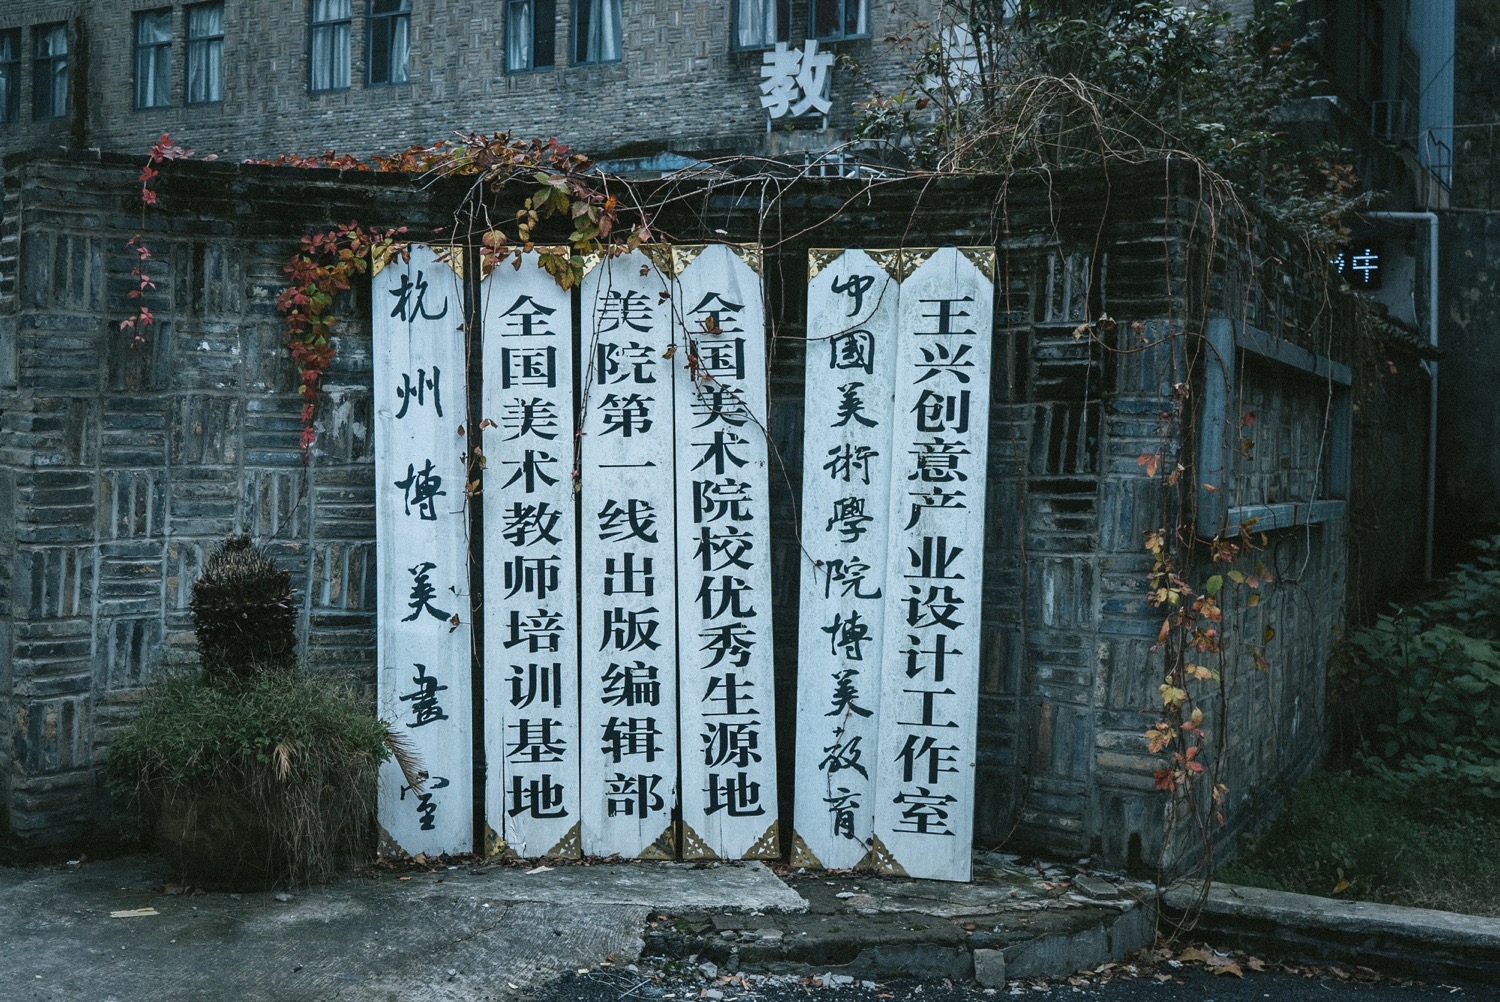 教
杭州博美畫室
全国美术教师培训基地
美院第一线出版编辑部
全国美术院校优秀生源地
中國美術學院博美教育
王兴创意产业设计工作室